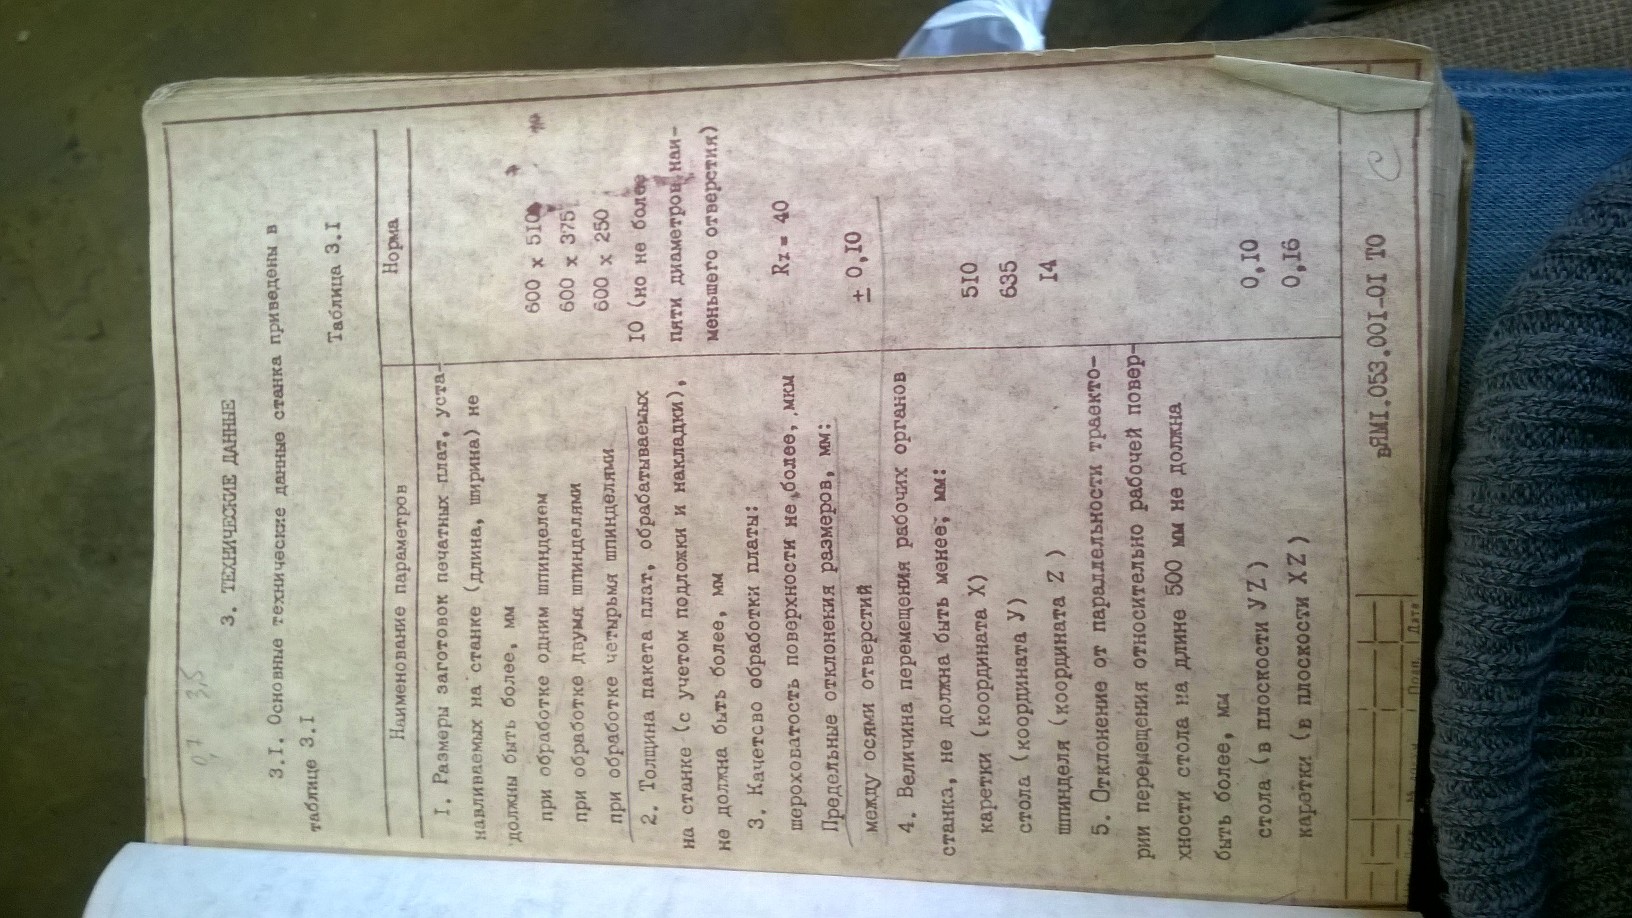 0,7 3,5
3. ТЕХНИЧЕСКИЕ ДАННЫЕ
3.I. Основные технические данные станка приведены в
таблице 3.I
Таблица 3.I
Наименование параметров Норма
I. Размеры заготовок печатных плат, уста-
навливаемых на станке (длина, ширина) не
должны быть более, мм
при обработке одним шпинделем 600 x 510
при обработке двумя шпинделями 600 x 375
при обработке четырьмя шпинделями 600 x 250
2. Толщина пакета плат, обрабатываемых IO (но не более
на станке (с учетом подложки и накладки), пяти диаметров наи-
не должна быть более, мм меньшего отверстия)
3. Качетсво обработки платы:
шероховатость поверхности не более, мкм Rz = 40
Предельные отклонения размеров, мм:
между осями отверстий ± 0,IO
4. Величина перемещения рабочих органов
станка, не должна быть менее, мм:
каретки (координата X) 5IO
стола (координата У) 635
шпинделя (координата Z ) I4
5. Отклонение от параллельности траекто-
рии перемещения относительно рабочей повер-
хности стола на длине 500 мм не должна
быть более, мм
стола (в плоскости УZ ) 0,IO
каретки (в плоскости XZ ) 0,I6
вЯМI.053.00I-OI ТО
Подп. Дата